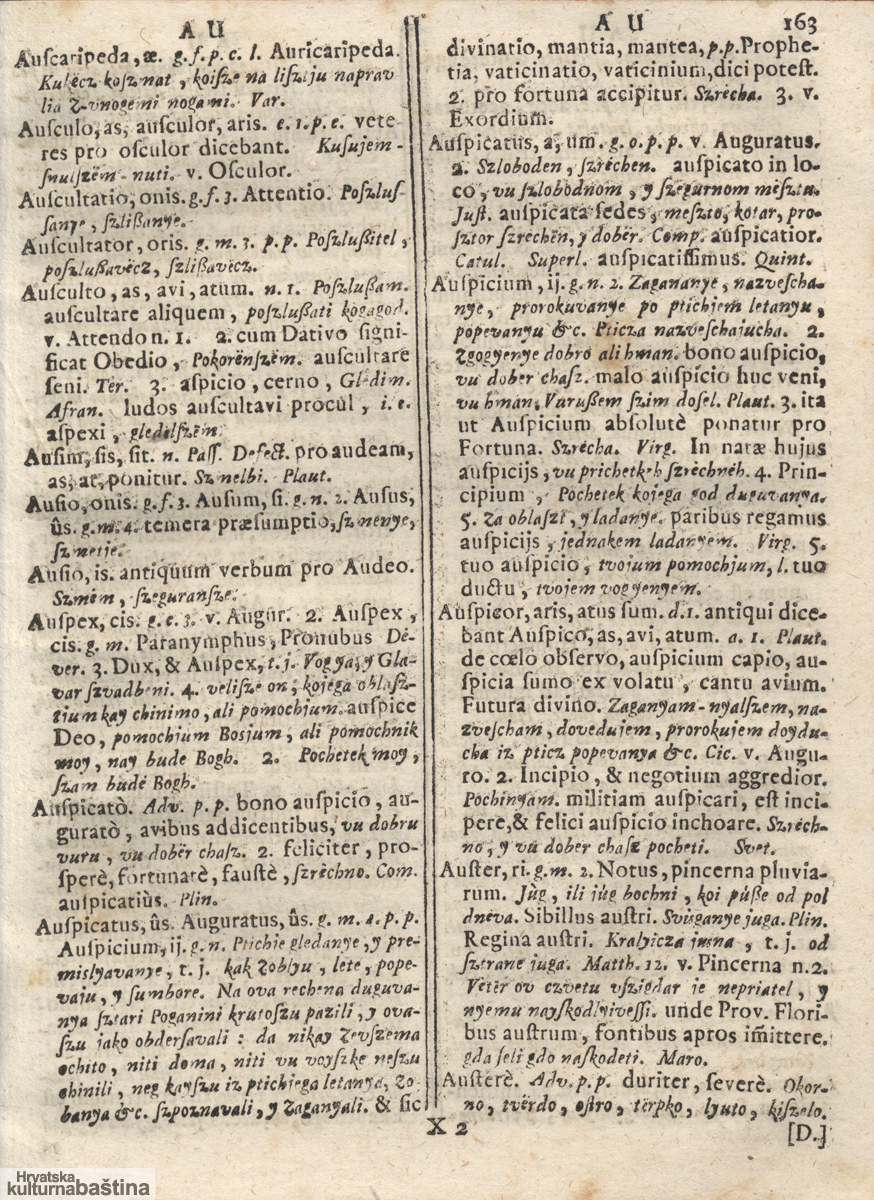 A U
Auſcaripeda, æ. g. f. p. c. l. Auricaripeda.
Kukëcz koſznat, koiſze na liſztju naprav
lia Zvnogemi nogami. Var.
Auſculo, as, auſculor, aris. c. 1. p. c. vete
res pro oſculor dicebant. Kuſujem-
ſnulſzëm-nuti. v. Oſculor.
Auſcultatio, onis. g. f. 3. Attentio. Poſzluſ-
ſanye, ſzlißanye.
Auſcultator, oris. g. m. 3. p. p. Poſzlußitel,
poſzlußavëcz, ſzlißavëcz.
Auſculto, as, avi, atum. n. 1. Poſzlußam.
auſcultare aliquem, poſzlußati kogagod.
v. Attendo n. 1. 2. cum Dativo ſigni-
ficat Obedio, Pokorënſzëm. auſcultare
ſeni. Ter. 3. aſpicio, cerno, Gledim.
Afran. ludos auſcultavi procul, i. e.
aſpexi, gledelſzëm.
Auſim, ſis, ſit. n. Paſſ. Defect. pro audeam,
as, at, ponitur. Sznelbi. Plaut.
Auſio, onis. g. f. 3. Auſum, ſi. g. n. 2. Auſus,
ûs. g. m. 4. temera præſumptio, ſzmenye,
ſzmetje.
Auſio, is. antiquum verbum pro Audeo.
Szmëm, ſzeguranſze.
Auſpex, cis. g. c. 3. v. Augur. 2. Auſpex,
cis. g. m. Paranymphus, Pronubus Dé-
ver. 3. Dux, & Auſpex, t. j. Vogya, y Gla-
var ſzvadbeni. 4. veliſze on, kojega oblaſz-
tjumkay chinimo, ali pomochjum. auſpice
Deo, pomochjum Bosjum, ali pomochnik
moy, nay bude Bogh. 2. Pochetek moy,
ſzam budé Bogh.
Auſpicatò. Adv. p. p. bono auſpicio, au-
guratò, avibus addicentibus, vu dobru
vuru, vu dobër chaſz. 2. feliciter, pro-
ſperè, fortunatè, fauſtè, ſzrëchno. Com.
auſpicatiùs. Plin.
Auſpicatus, ûs. Auguratus, ûs. g. m. 4. p. p.
Auſpicium, ij. g. n. Ptichje gledanye, y pre-
mislyavanye, t. j. kak Zoblju, lete, pope-
vaju, y ſumbore. Na ova rechena duguva-
nya ſztari Poganini krutoſzu pazili, y ova-
ſzu jako obderſavali: da nikay Zevſzema
ochito, niti doma, niti vu voyſzke neſzu
chinili, neg kayſzu iz ptichjega letanya, Zo-
banya &c. ſzpoznavali, y Zaganyali. & ſic
A U 163
divinatio, mantia, mantea, p. p. Prophe-
tia, vaticinatio, vaticinium, dici poteſt.
2. pro fortuna accipitur. Szrëcha. 3. v.
Exordium.
Auſpicatus, a, um. g. o. p. p. v. Auguratus.
2. Szloboden, ſzrëchen. auſpicato in lo-
co, vu ſzlobodnom, y ſzegurnom mëſztu.
Juſt. auſpicata ſedes, meſzto, kotar, pro-
ſztor ſzrechën, y dobër. Comp. auſpicatior.
Catul. Superl. auſpicatiſſimus. Quint.
Auſpicium, ij. g. n. 2. Zagananye, nazveſcha-
nye, prorokuvanye po ptichjem letanyu,
popevanyu &c. Pticza nazveſchajucha. 2.
Zgogyenye dobro ali hman. bono auſpicio,
vu dober chaſz. malo auſpicio huc veni,
vu hman. Varußem ſzim doſel. Plaut. 3. ita
ut Auſpicium abſolutè ponatur pro
Fortuna. Szrëcha. Virg. In natæ hujus
auſpicijs, vu prichetkeh ſzrëchnëh. 4. Prin-
cipium, Pochetek kojega god duguvanya.
5. Za oblaſzt, y ladanye. paribus regamus
auſpicijs, jednakem ladanyem. Virg. 5.
tuo auſpicio, tvojum pomochjum, l. tuo
ductu, tvojem vogyenyem.
Auſpicor, aris, atus ſum. d. 1. antiqui dice-
bant Auſpico, as, avi, atum. a. 1. Plaut.
de cœlo obſervo, auſpicium capio, au-
ſpicia ſumo ex volatu, cantu avium.
Futura divino. Zaganyam-nyalſzem, na-
zveſcham, dovedujem, prorokujem doydu-
cha iz pticz popevanya &c. Cic. v. Augu-
ro. 2. Incipio, & negotium aggredior.
Pochinyam. militiam auſpicari, eſt inci-
pere, & felici auſpicio inchoare. Szrëch-
no, y vu dober chaſz pocheti. Svet.
Auſter, ri. g. m. 2. Notus, pincerna pluvia-
rum. Jùg, ili jùg bochni, koi púße od pol
dnéva. Sibillus auſtri. Svisganye juga. Plin.
Regina auſtri. Kralyicza jusna, t. j. od
ſztrane juga. Matth. 12. v. Pincerna n. 2.
Vetër ov czvetu vſzigdar je nepriatel, y
nyemu nayſkodlyiveſſi. unde Prov. Flori-
bus auſtrum, fontibus apros im̃ittere.
gda ſeli gdo naſkodeti. Maro.
Auſterè. Adv. p. p. duriter, ſeverè. Okor-
no, tvërdo, oſtro, tërpko, ljuto, kiſzelo.
X 2 [D.]
Hrvatska
kulturnabaština